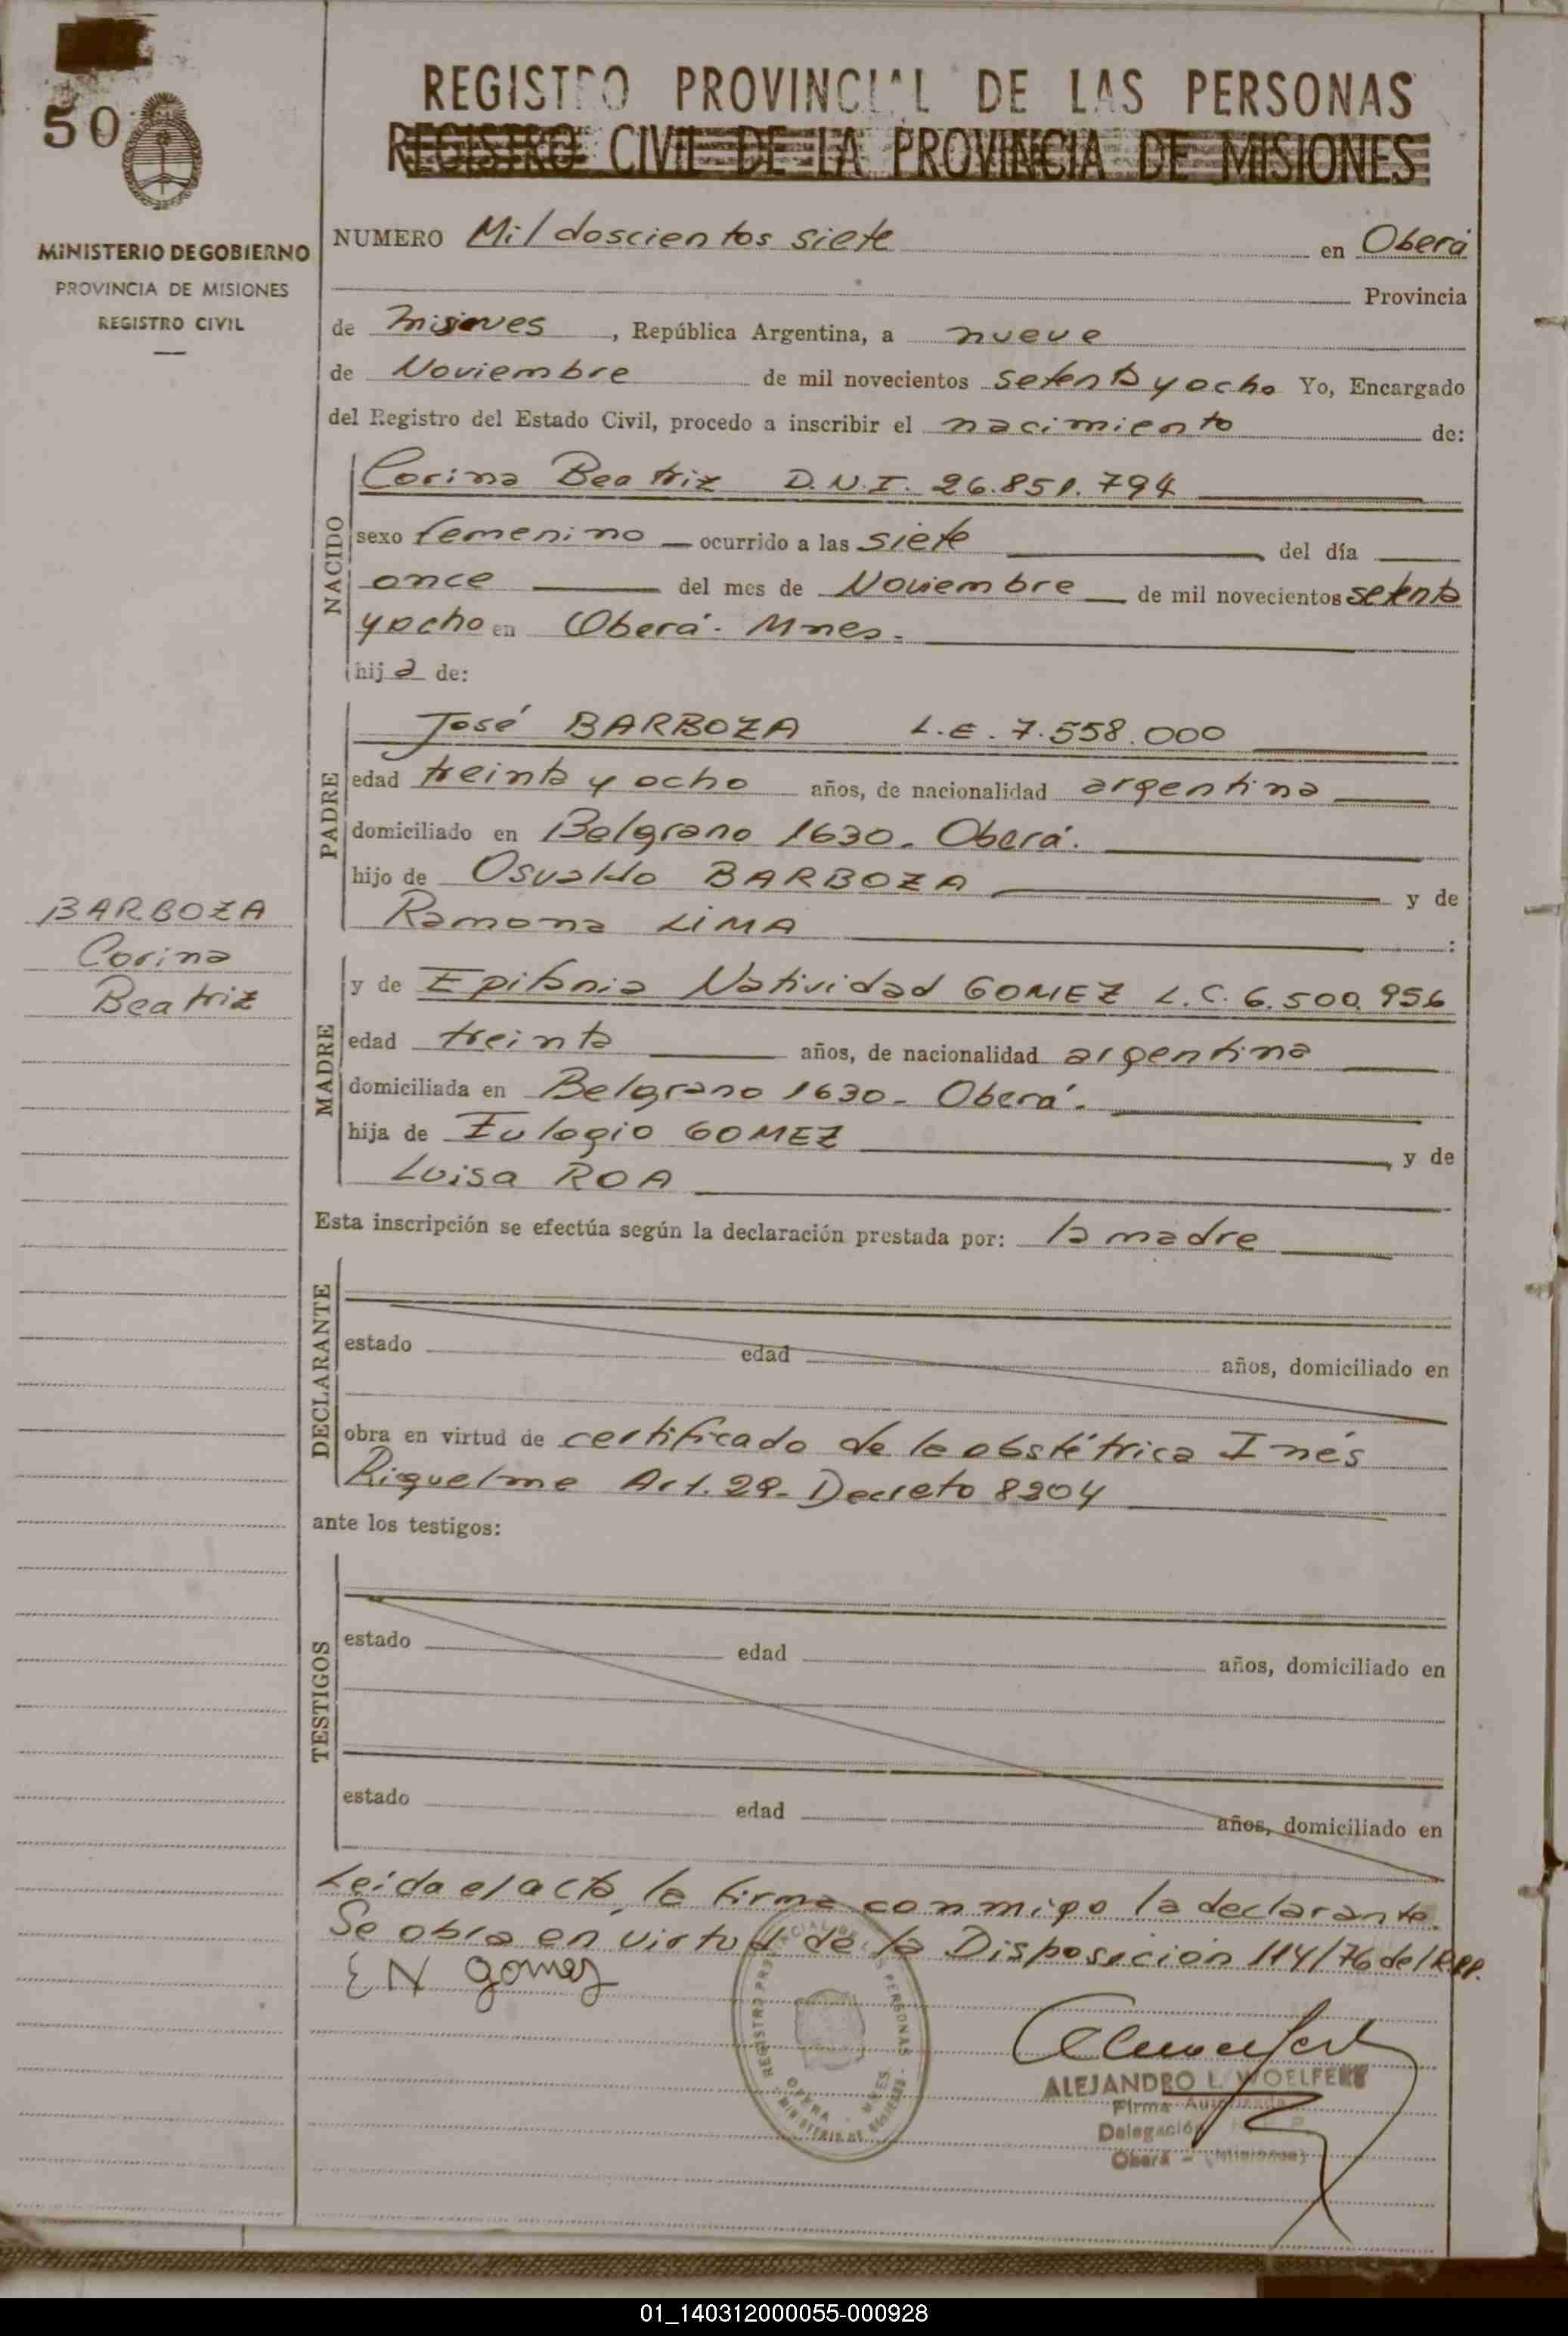 50
REGISTRO PROVINCIAL DE LAS PERSONAS
REGISTRO CIVIL DE LA PROVINCIA DE MISIONES
MINISTERIO DE GOBIERNO
PROVINCIA DE MISIONES
REGISTRO CIVIL
NUMERO Mil doscientos siete en Oberá
Provincia
de Misiones, República Argentina, a nueve
de Noviembre de mil novecientos setenta y ocho Yo, Encargado
del Registro del Estado Civil, procedo a inscribir el nacimiento de:
NACIDO
Corina Beatriz D.N.I. 26.851.794
sexo femenino ocurrido a las siete del día
once del mes de Noviembre de mil novecientos setenta
y ocho en Oberá. Mnes.
hija de:
PADRE
José BARBOZA L.E. 7.558.000
edad treinta y ocho años, de nacionalidad argentina
domiciliado en Belgrano 1630. Oberá.
hijo de Osvaldo BARBOZA y de
Ramona LIMA :
BARBOZA
Corina
Beatriz
MADRE
y de Epifania Natividad GOMEZ L.C. 6.500.956
edad treinta años, de nacionalidad argentina
domiciliada en Belgrano 1630- Oberá.
hija de Eulogio GOMEZ, y de
Luisa ROA
Esta inscripción se efectúa según la declaración prestada por: la madre
DECLARANTE
estado edad años, domiciliado en
obra en virtud de certificado de la obstétrica Inés
Riquelme Art. 29- Decreto 8204
ante los testigos:
TESTIGOS
estado edad años, domiciliado en
estado edad años, domiciliado en
Leida el acta, la firma conmigo la declarante.
Se obra en virtud de la Disposición 114/76 del R.PP.
E N Gomez
REGISTRO PROVINCIAL DE LAS PERSONAS
OBERA - MNES
MINISTERIO DE GOBIERNO
ALEJANDRO L. WOELFERT
Firma Autorizada
Delegación
Oberá - (Misiones)
01_140312000055-000928